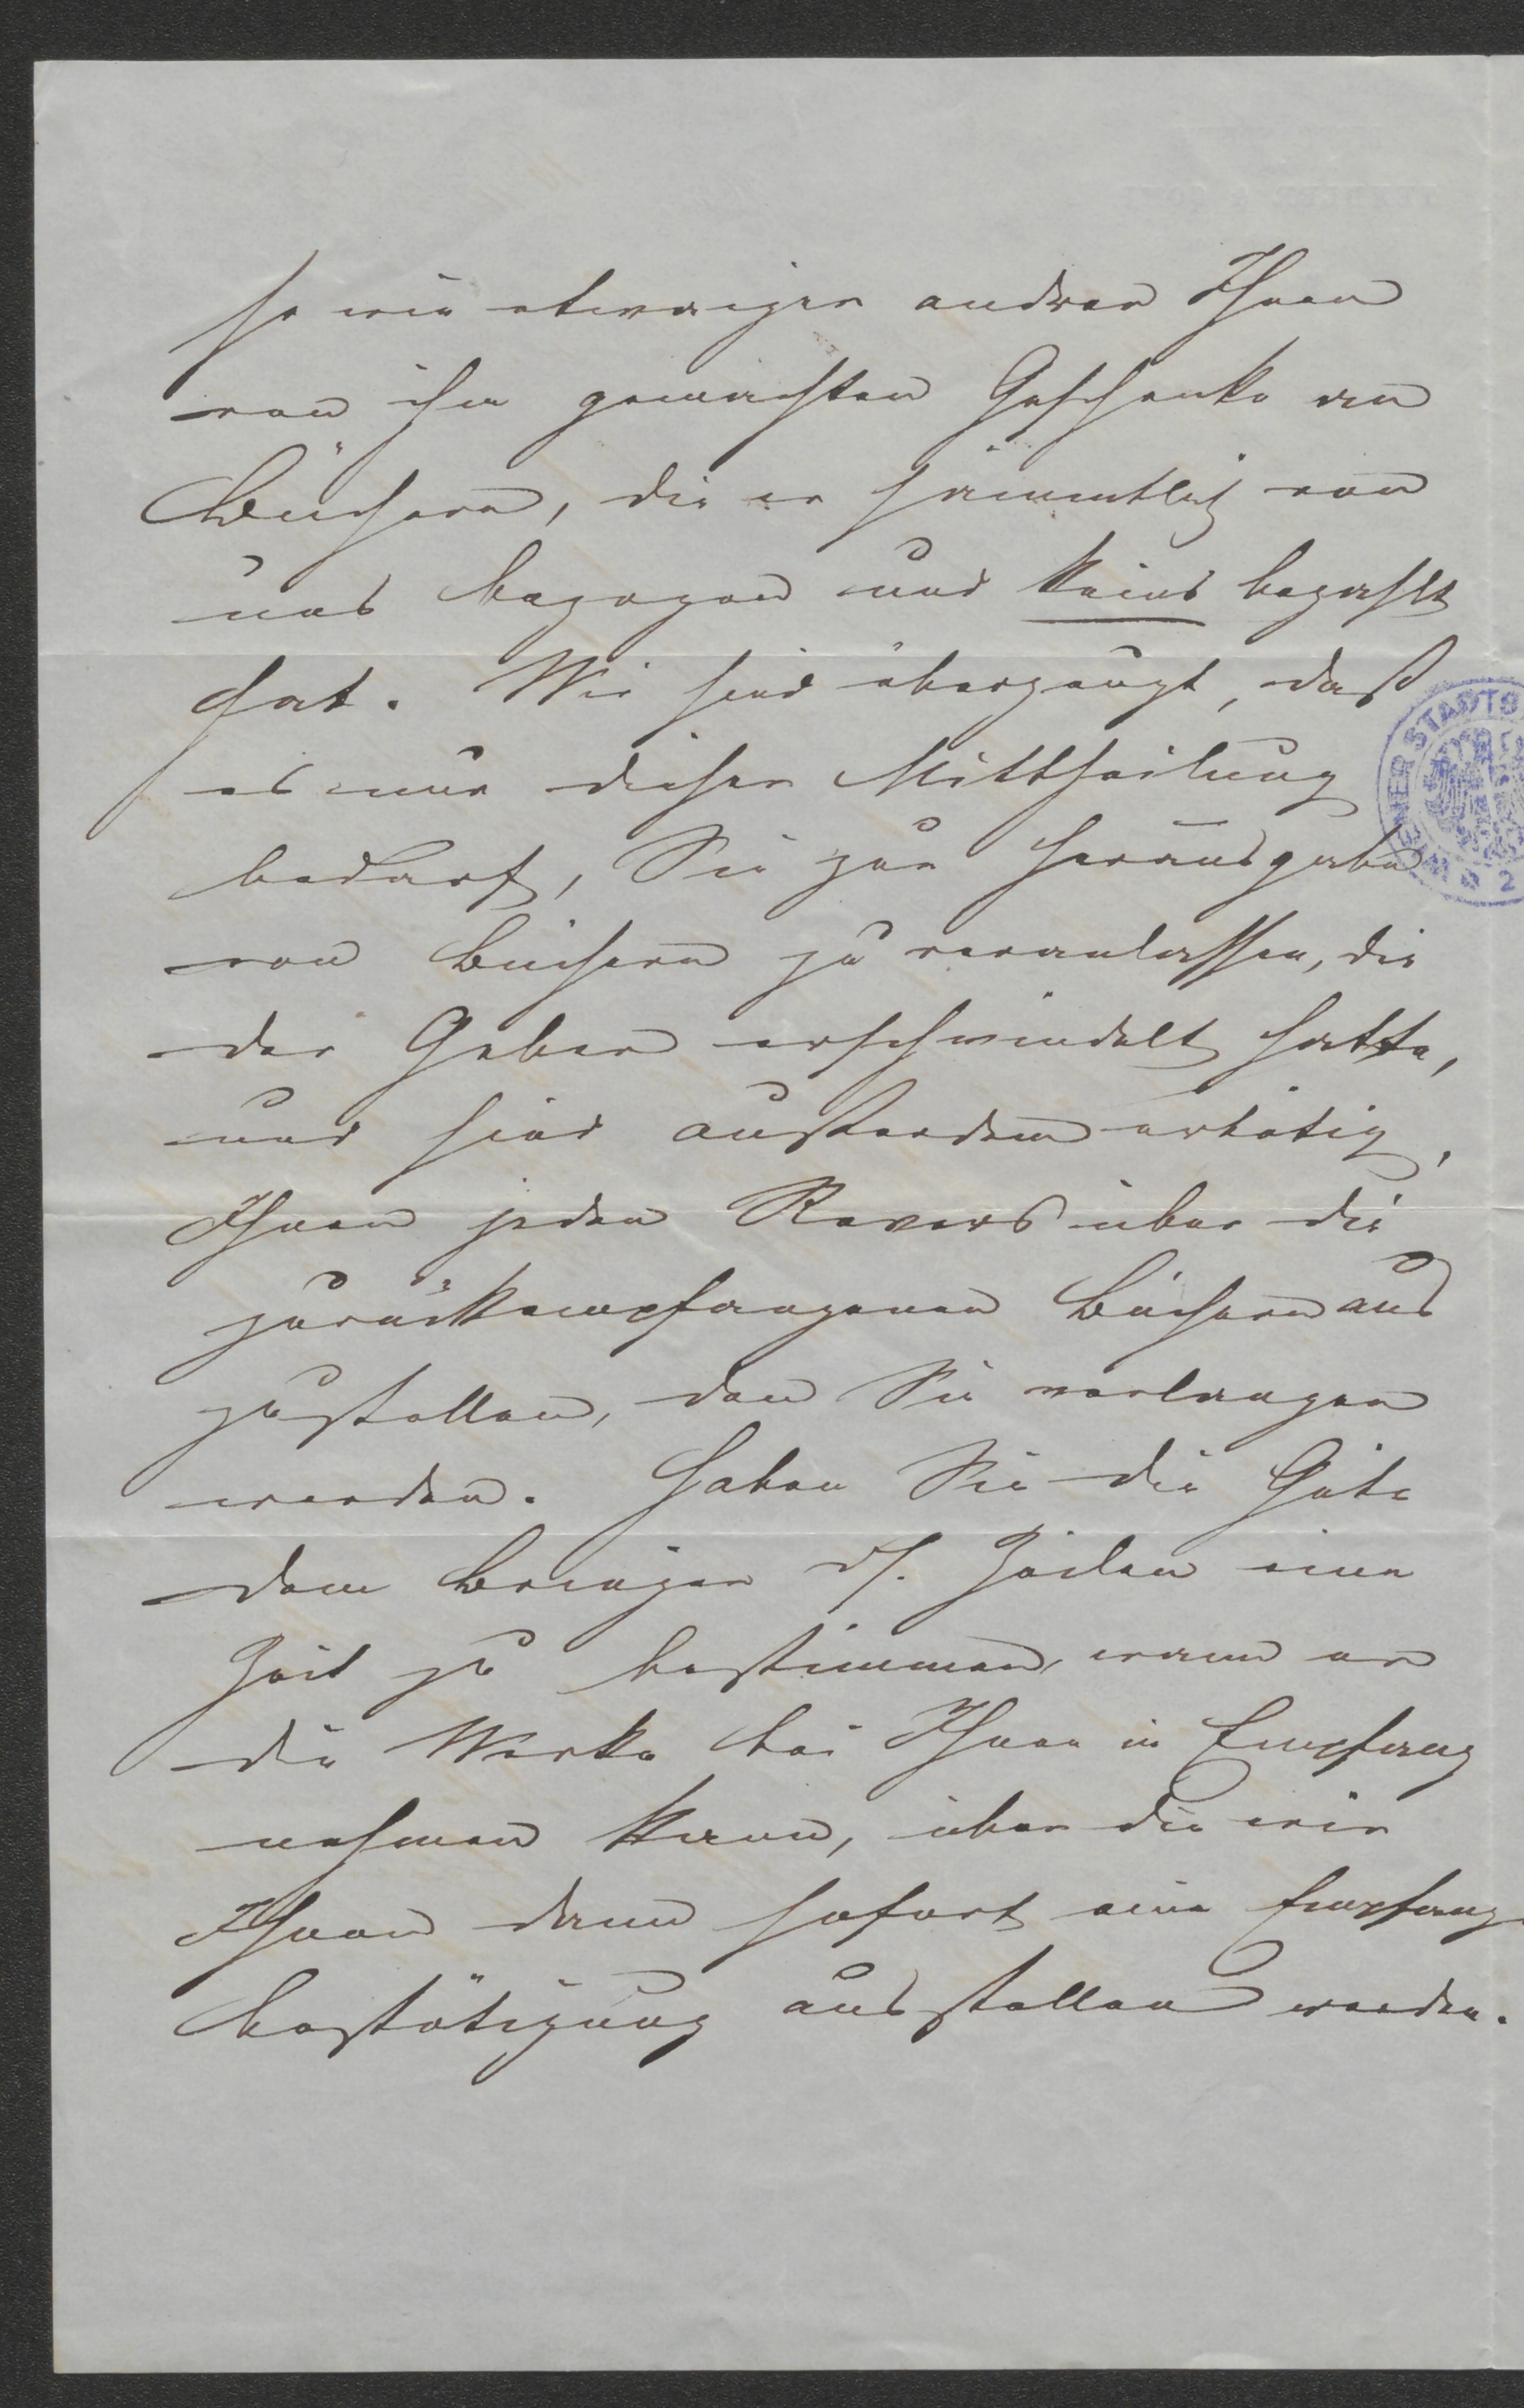 so wie etwaiger andrer Ihnen
von ihm gemachten Geschenke an
Büchern, die er sämmtlich von
uns bezogen und keins bezahlt
hat. Wir sind überzeugt, daß
es nur dieser Mittheilung
bedarf, Sie zur Herausgabe
von Büchern zu veranlassen, die
der Geber erschwindelt hatte,
und sind außerdem erbötig,
Ihnen jeden Revers über die
zurückempfangenen Büchern aus
zustellen, den Sie verlangen
werden. Haben Sie die Güte
dem Bringer ds. Zeilen eine
Zeit zu bestimmen, wann er
die Werke bei Ihnen in Empfang
nehmen kann, über die wir
Ihnen dann sofort eine Empfangs
bestätigung ausstellen werden.
STADTS